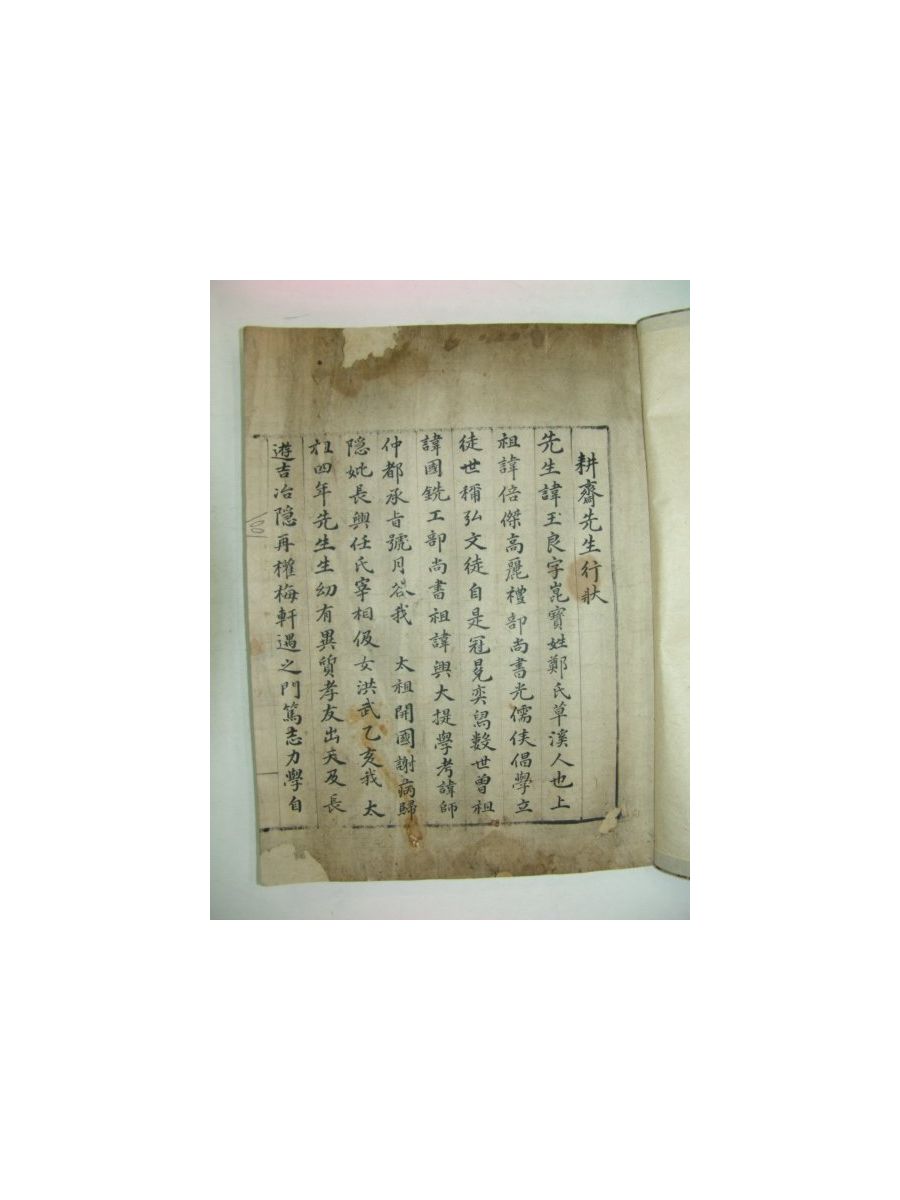 耕齋先生行狀
先生諱玉良字崑寶姓鄭氏草溪人也上
祖諱倍傑高麗禮部尚書光儒侯倡學立
徒世稱弘文徒自是冠冕奕舃數世曾祖
諱國銑工部尚書祖諱興大提學考諱師
仲都承旨號月谷我 太祖開國謝病歸
隱妣長興任氏宰相伋女洪武乙亥我 太
祖四年先生生幼有異質孝友出天及長
遊吉冶隱再權梅軒遇之門篤志力學自